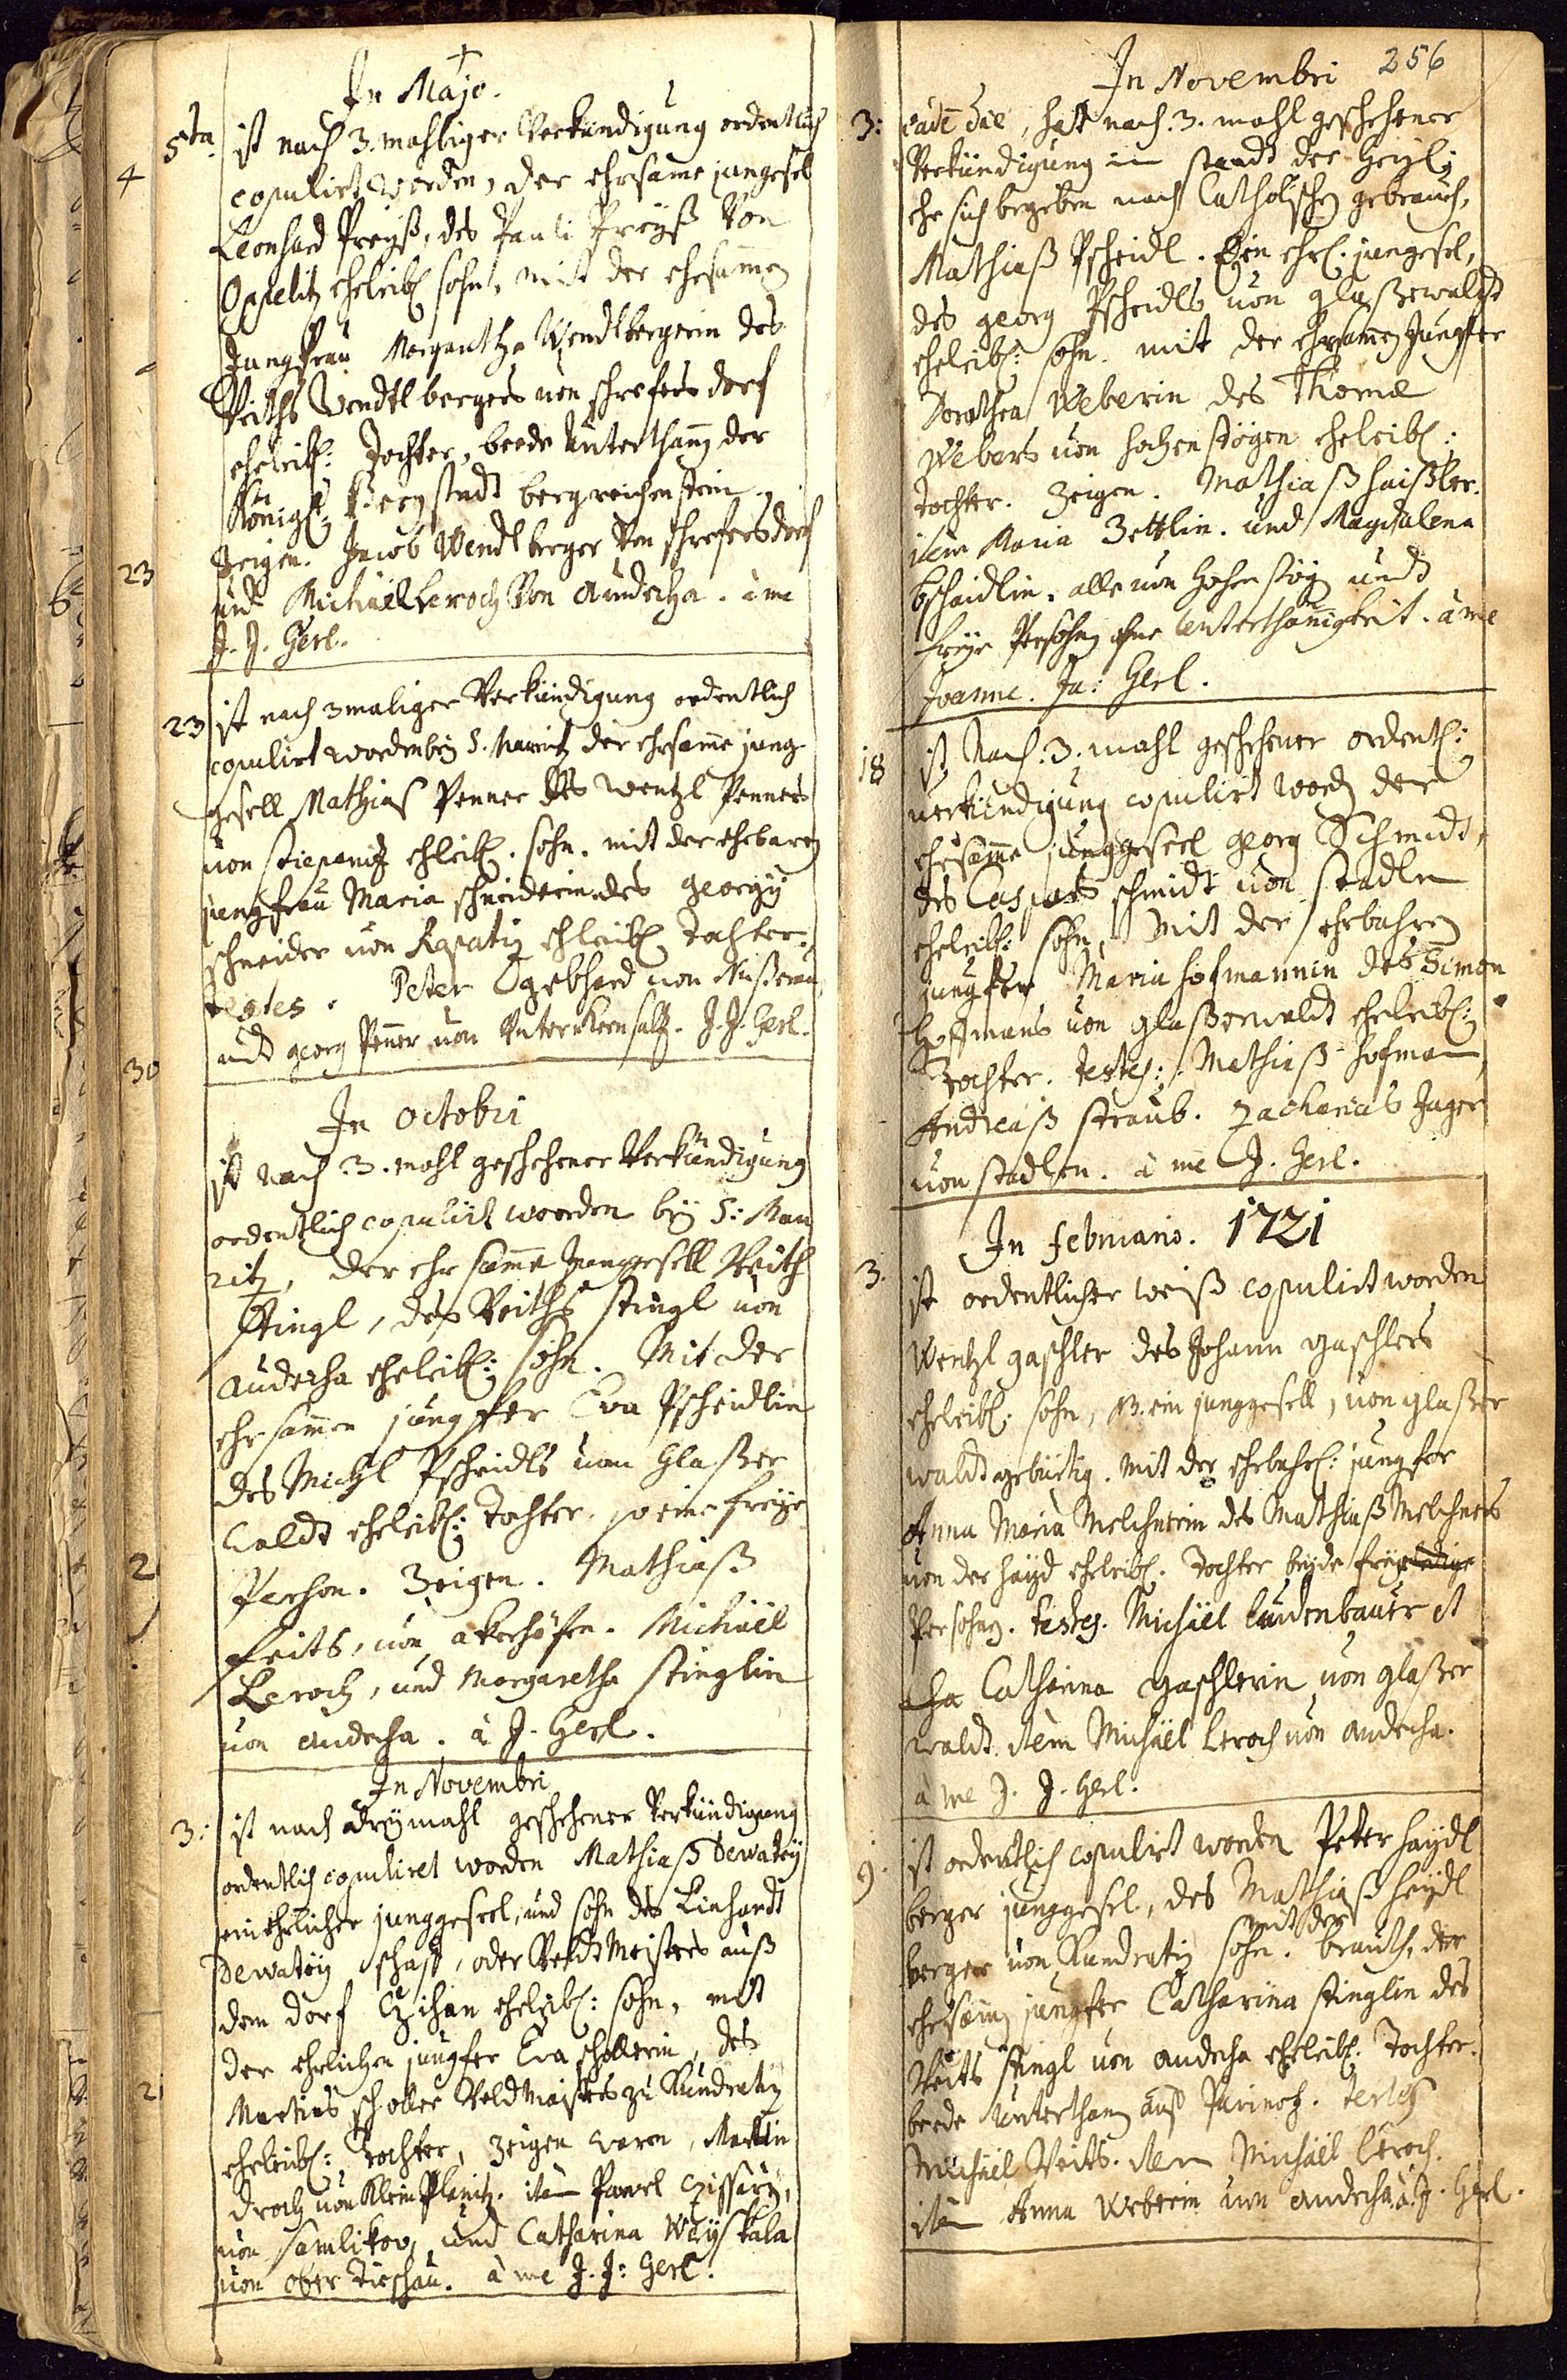 In Majo.
5ta ist nach 3. mahliger Verkündigung ordentlich
copulirt worden, der ehrsame jungesel
Leonhard Preyß, des Pauli Preyß Von
Oppelitz eheleibl sohn, mit der ehrsamen
Jungfrau Margaretha Wendlbergerin des
Veiths Wendtlbergers von schrofersdorf
eheleibl: Tochter, beede Unterthanen der
Königl: Bergstadt bergreichenstein,
Zeigen. Jacob Wendlberger Von schrofersdorf
und Michael Leroch Von Audecha. a me
J. J. Gerl.
23 ist nach 3maliger Verkündigung ordentlich
copulirt worden bey S. Mauritz der ehrsame jung
gesell Mathias Penner des Wentzl Penners
von stiepanitz ehleibl. sohn. mit der ehrbaren
jungfrau Maria schneiderin des Georgÿ
schneider von Rapatitz ehleibl Tochter.
testes. Peter Gebhard von Nußerau,
und georg Penner von Unterkörnsaltz. J. J. Gerl.
In octobri
ist nach 3. mahl geschehener Verkündigung
ordentlich copulirt worden beÿ S: Mau
ritz, der ehrsame Jungesell Veith
Stingl, des Veiths stingl von
Audecha eheleibl: sohn. Mit der
ehrsamen jungfer Eva Pscheidlin
des Michl Pscheidls von Glaßer
waldt eheleibl: Tochter. so eine freÿe
Person. Zeigen. Mathiaß
Feits, von akerhöfen. Michaël
Leroch, und Margaretha stinglin
von audecha. à J. Gerl.
In Novembri
3: ist nach dreÿmahl geschehener Verkündigung
ordentlich copuliret worden Mathiaß Dewatÿ
ein ehrlicher junggeseel, und sohn des Linhardt
Dewatÿ schaf, oder Veldt Meisters auß
dem dorf Czihan eheleibl: sohn, mit
der ehrlichen jungfer Eva schollerin, des
Martins scholler Veldmeisters zu Kundratitz
eheleibl: Tochter, Zeigen waren, Martin
droch von Klein Planitz. item Pawel Czissarÿ,
von samlikov, und Catharina Wayskala
von ober Tieschau. à me J. J: Gerl.
256
In Novembri
3: eadem die, hatt nach. 3. mahl geschehener
Verkündigung im standt der Heyl:
ehe sich begeben nach Catholischen gebrauch,
Mathiaß Pscheidl. Ein ehrl. jungesel,
des georg Pscheidls von glaßerwaldt
eheleibl: sohn. mit der ehrsamen Jungfer
Dorothea Weberin des Thomæ
Webers von hohenstögen eheleibl:
tochter. Zeigen. Mathiaß haißler.
item Maria Zettlin. und Magdalena
bscheidlin. alle von Hohenstög undt
freÿe Persohnen ohne Unterthannigkeit. à me
Joanne. Ja: Gerl.
18 ist Nach: 3. mahl geschehener ordentl:
verkündigung copulirt worden der
ehrsamme junggeseel georg Schmidt,
des Caspars schmidt von stadln
eheleibl: sohn, mit der ehrbahren
jungfer Maria hofmannin des Simon
Hoffmans von glaßerwaldt eheleibl:
Tochter. testes: Mathiaß hofman,
Andreaß straub. Zacharias Jager
von stadlen. à me J. Gerl.
In februario. 1721
3. ist ordentlicher weiß copulirt worden
Wentzl gaschler des Johann gaschlers
eheleibl. sohn, ein junggesell, von glaßer
waldt gebürtig. mit der ehrbahrl: jungfer
Anna Maria Melchnerin des Mathiaß Melchners
von der haÿd eheleibl. Tochter beÿde freÿledige
Persohnen. testes. Michäel lindenbauer it
Catharina gaschlerin von glaßer
waldt. item Michäel Leroch von audecha.
à me J. J. Gerl.
9. ist ordentlich copulirt worden Peter haÿdl
berger junggesel, des Mathiaß heÿdl
berger von Kundratitz sohn. mit der brauth, der
ehrsamen jungfer Catharina stinglin des
Veits stingl von audecha eheleibl. Tochter.
beede Unterthanen auß . testes
Michäel Veits. item Michäel Leroch.
item Anna Weberin von audecha à J. Gerl.
4
23
30
2
21